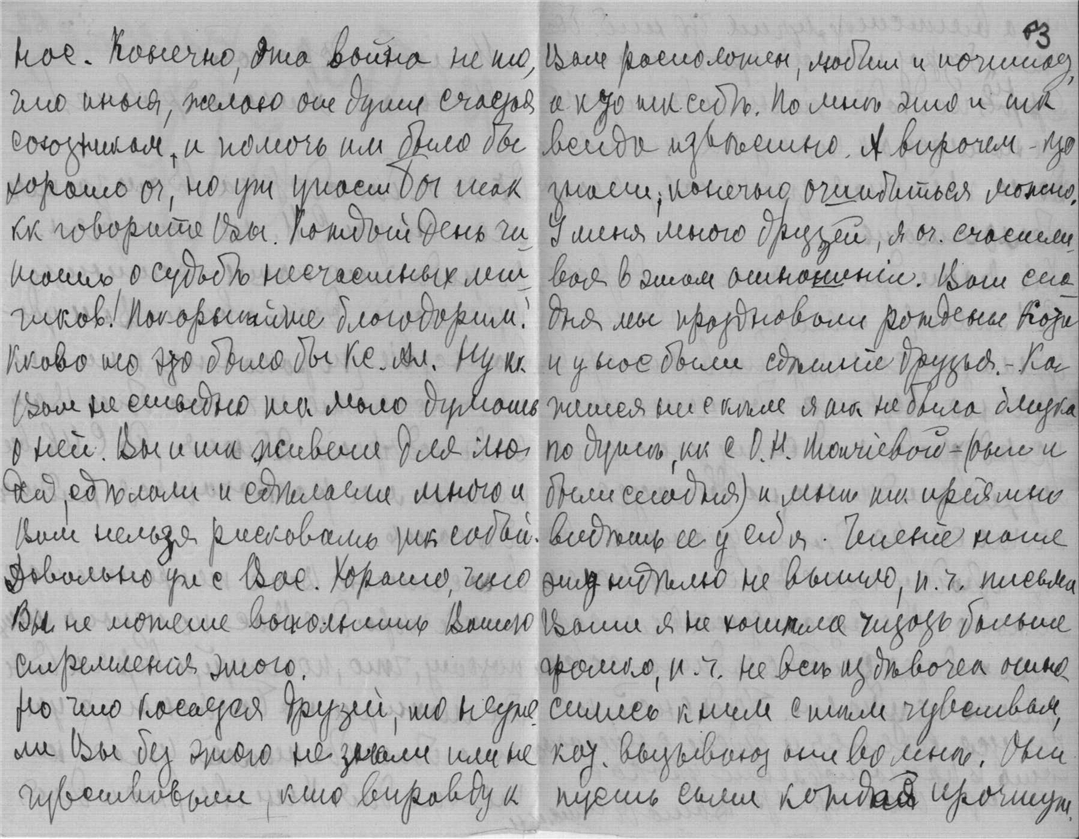 нас. Конечно, эта война не то,
что иныя, желаю от души счастья
союзникам, и помочь им было бы
хорошо оч, но уж участ бы так
кк говорите Вы. Каждый день чи-
таешь о судьбѣ несчастных лет-
чиков! Покорнейше благодарим!
Каково то это было бы Кс. Ал. Ну кк
Вам не стыдно так мало думать
о ней. Вы и так живете для лю-
дей, сдѣлали и сдѣлаете много и
Вам нельзя рисковать так собой.
Довольно уж с Вас. Хорошо, что
Вы не можете выполнить Вашего
стремления этого.
Но что касается друзей, то неуже
ли Вы без этого не знали или не
чувствовали, кто вправду к
83
Вам расположен, любит и почитает,
а кто так себѣ. По мнѣ это и так
всегда извѣстно. А впрочем - кто
знает, конечно ошибиться можно.
У меня много друзей, я оч. счастли-
вая в этом отношеніи. Вот сего
дня мы праздновали рожденье Коти
и у нас были с друзья. - Ка-
жется ни с кем я так не была близка
по душѣ, кк с О.Н. Толмачевой - (они и
были сегодня) и мнѣ так прiятно
видѣть ее у себя. Чтеніе наше
эту недѣлю не вышло, п. ч. письма
Ваши я не хотѣла читать больше
громко, п. ч. не всѣ из дѣвочек отно
сились к ним с тем чувством,
кот. вызывают они во мнѣ. Они
пусть сами каждая прочтут.